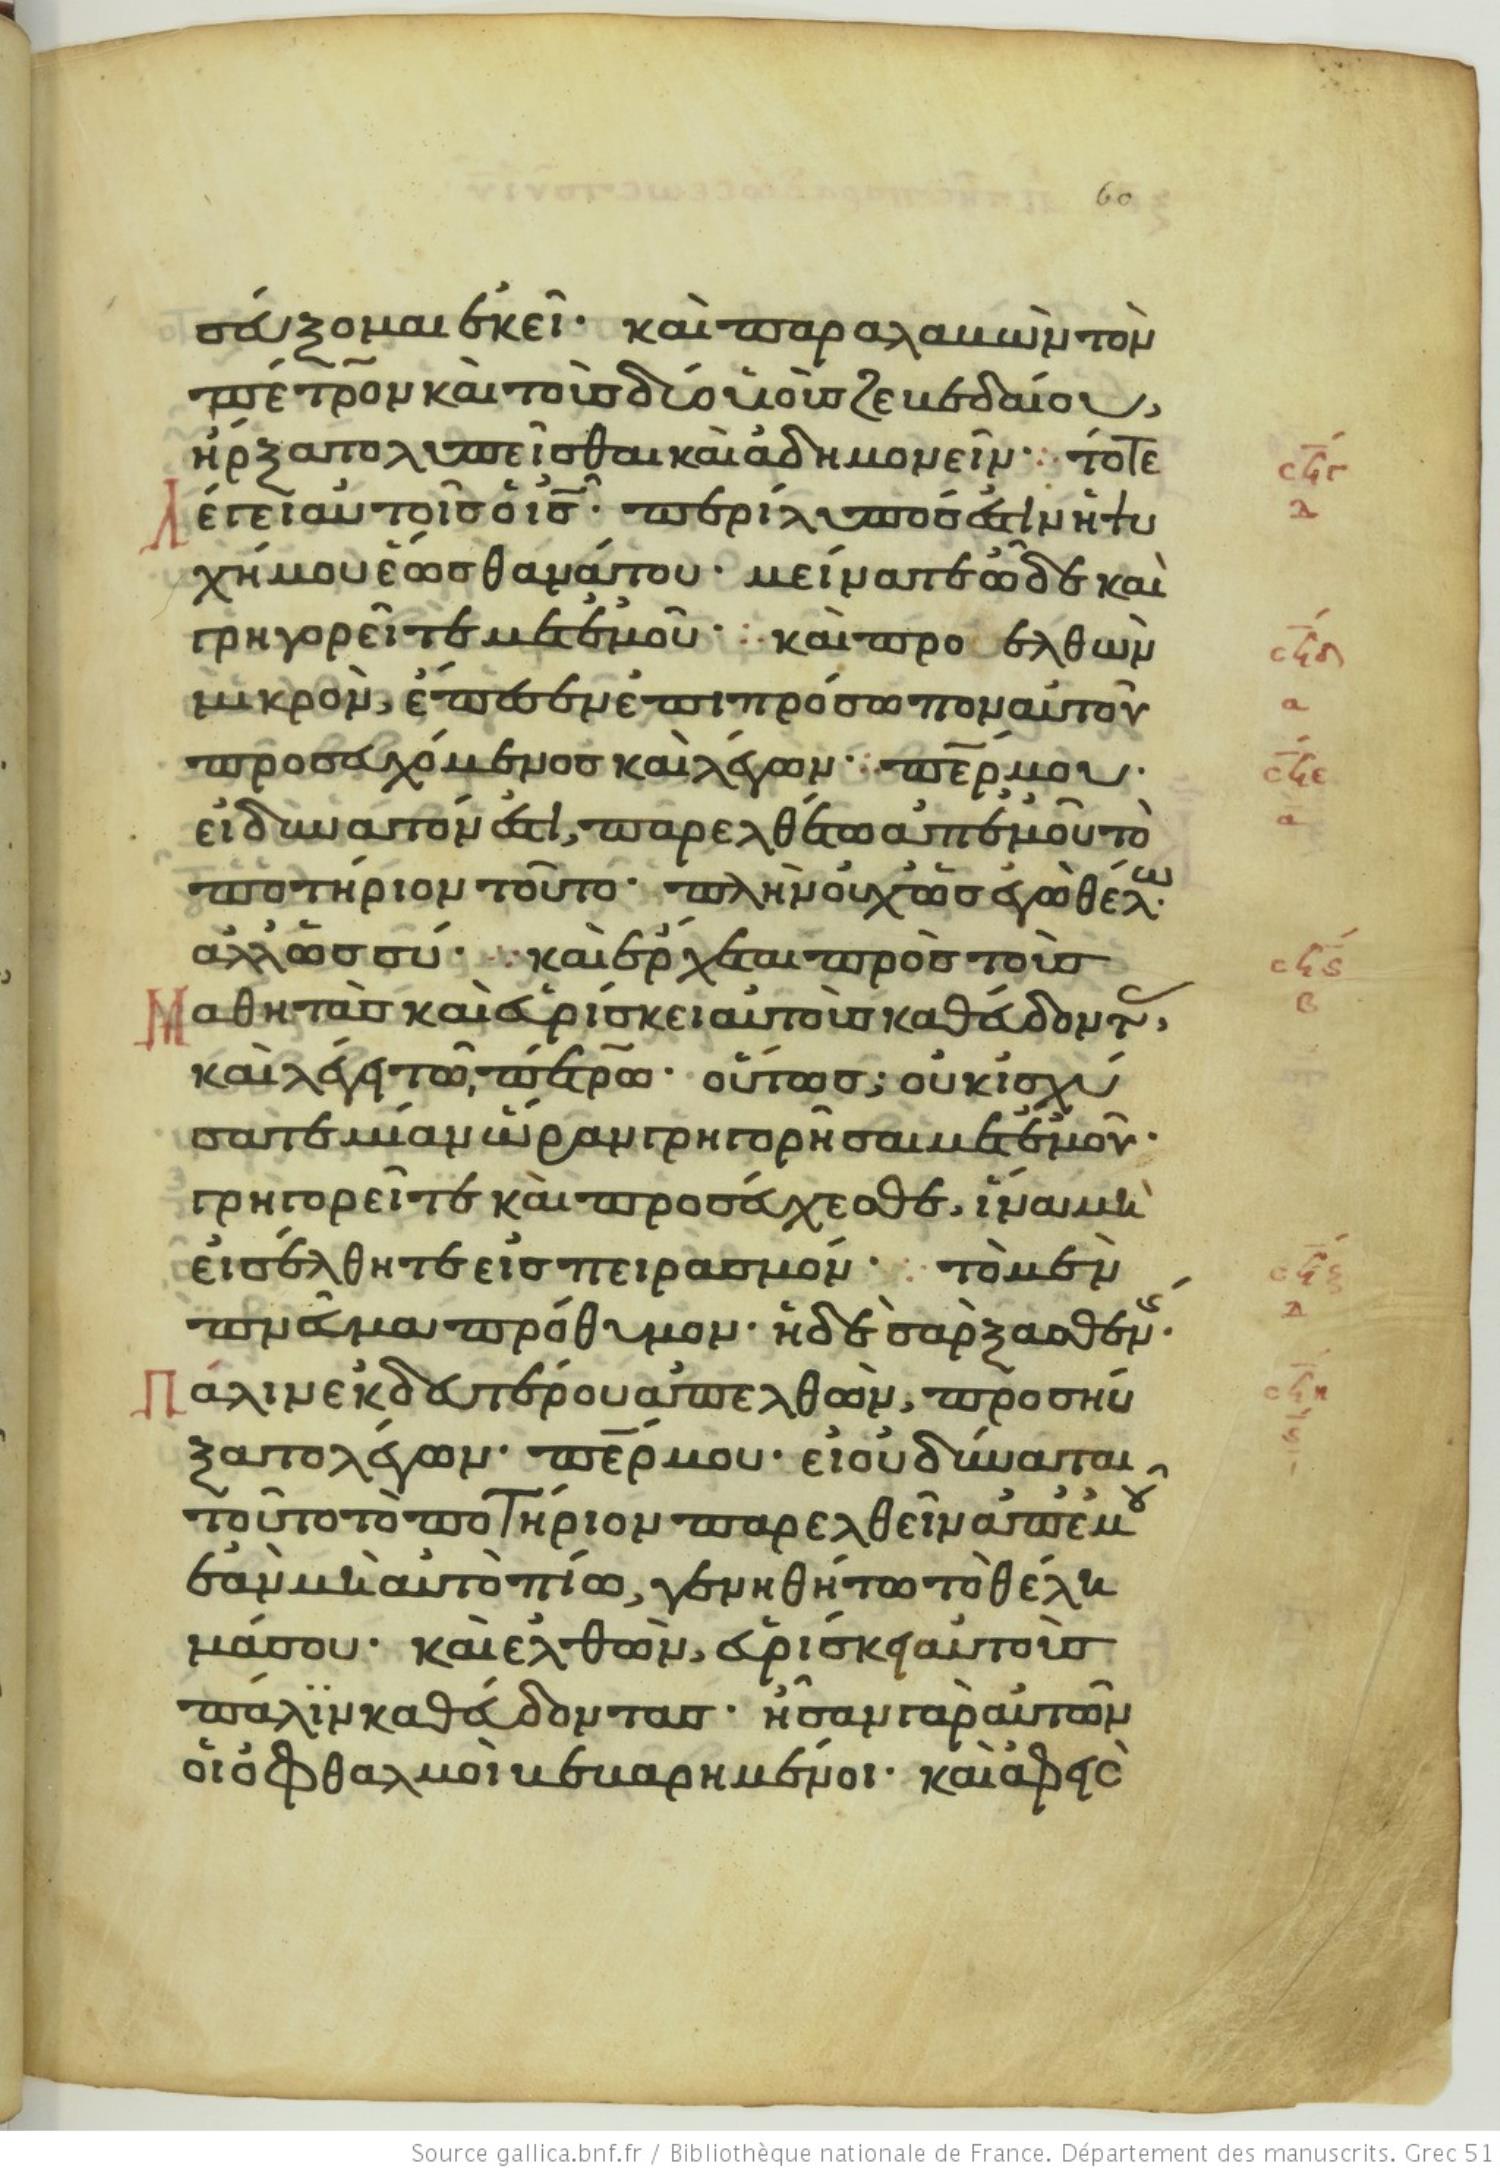 60
σεύξομαι ἐκεῖ· καὶ παραλαβὼν τὸν
πέτρον καὶ τοὺς δύο υἱοὺς ζεβεδαίου,
ἤρξατο λυπεῖσθαι καὶ ἀδημονεῖν· τότε
λέγει αὐτοῖς ὁ ις̄· περίλυπός ἐστιν ἡ ψυ
χή μου ἕως θανάτου· μείνατε ὧδε καὶ
γρηγορεῖτε μετ' ἐμοῦ· καὶ προελθὼν
μικρὸν, ἔπεσεν ἐπὶ πρόσωπον αὐτοῦ
προσευχόμενος καὶ λέγων· πε̄ρ μου·
εἰ δυνατόν ἐστι, παρελθέτω ἀπ' ἐμοῦ τὸ
ποτήριον τοῦτο· πλὴν οὐχ ὡς ἐγὼ θέλω·
ἀλλ' ὡς σύ· καὶ ἔρχεται πρὸς τοὺς
μαθητὰς καὶ εὑρίσκει αὐτοὺς καθεύδοντ,
καὶ λέγει τῶ πέτρω· οὕτως; οὐκ ἰσχύ
σατε μίαν ὥραν γρηγορῆσαι μετ' ἐμοῦ·
γρηγορεῖτε καὶ προσεύχεσθε, ἵνα μὴ
εἰσέλθητε εἰς πειρασμόν· τὸ μὲν
πνεῦμα πρόθυμον· ἡ δὲ σὰρξ ἀσθενής·
πάλιν ἐκ δευτέρου ἀπελθὼν, προσηύ
ξατο λέγων· πε̄ρ μου· εἰ οὐ δύναται
τοῦτο τὸ ποτήριον παρελθεῖν ἀπ' ἐμοῦ
ἐὰν μὴ αὐτὸ πίω, γενηθήτω τὸ θέλη
μά σου· καὶ ἐλθὼν, εὑρίσκει αὐτοὺς
πάλϊν καθεύδοντας· ἦσαν γὰρ αὐτῶν
οἱ ὀφθαλμοὶ βεβαρημένοι· καὶ ἀφεὶς
Source gallica.bnf.fr / Bibliothèque nationale de France. Département des manuscrits. Grec 51